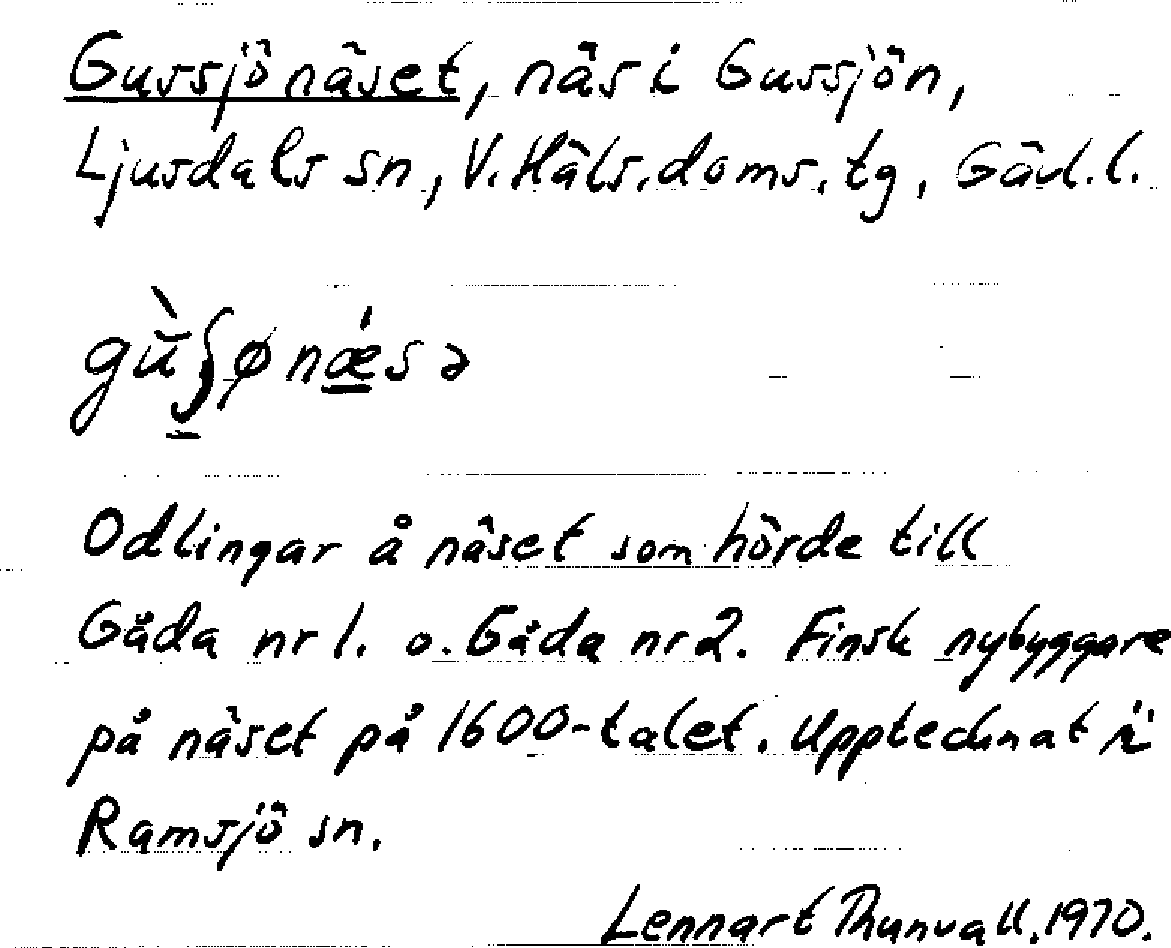 Gussjönäset, näs i Gussjön,
Ljusdals sn, V. Häls. doms. tg, Gävl. l.
gùʃønǽsə
Odlingar å näset som hörde till
Gåda nr 1. o. Gåda nr 2. Finsk nybyggare
på näset på 1600-talet. Upptecknat i
Ramsjö sn.
Lennart Thunvall, 1970.